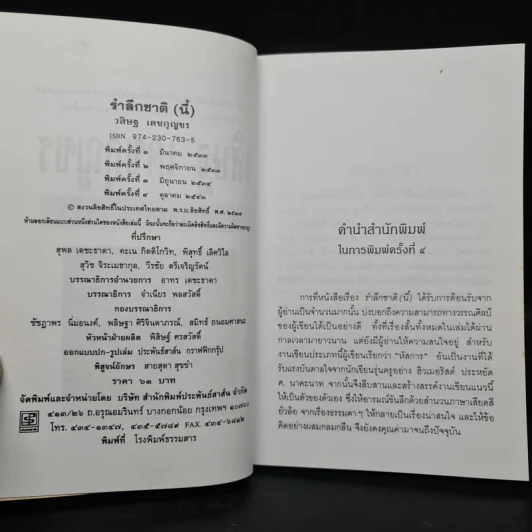 รำลึกชาติ (นี้)
วสิษฐ เดชกุญชร
ISBN 974-230-763-5
พิมพ์ครั้งที่ ๑ มีนาคม ๒๕๓๓
พิมพ์ครั้งที่ ๒ พฤศจิกายน ๒๕๓๓
พิมพ์ครั้งที่ ๓ มิถุนายน ๒๕๓๔
พิมพ์ครั้งที่ ๔ ตุลาคม ๒๕๔๓
© สงวนลิขสิทธิ์ในประเทศไทยตาม พ.ร.บ.ลิขสิทธิ์ พ.ศ. ๒๕๓๗
ที่ปรึกษา
สุพล เตชะธาดา, คะเน กิตติโกวิท, พิสุทธิ์ เลิศวิไล
สุวิช จิระเมธากุล, วีรชัย ตรีเจริญรัตน์
บรรณาธิการอำนวยการ อาทร เตชะธาดา
บรรณาธิการ จำเนียร พลสวัสดิ์
กองบรรณาธิการ
ชัชฎาพร นิ่มอนงค์, พลิษฐา ศิริจินดาภรณ์, สมิทธ์ ถนอมศาสนะ
หัวหน้าฝ่ายผลิต พิสิษฐ์ ศรสวัสดิ์
ออกแบบปก-รูปเล่ม ประพันธ์สาส์น กราฟฟิกกรุ๊ป
พิสูจน์อักษร สายสุดา สุรขำ
ราคา ๖๓ บาท
จัดพิมพ์และจำหน่ายโดย บริษัท สำนักพิมพ์ประพันธ์สาส์น จำกัด
๔๑๓/๒๖ ถ.อรุณอมรินทร์ บางกอกน้อย กรุงเทพฯ ๑๐๗๐๐
โทร. ๔๓๔-๑๓๔๗, ๔๓๕-๕๗๘๙ FAX. ๔๓๔-๖๘๑๒
พิมพ์ที่ โรงพิมพ์ธรรมสาร
คำนำสำนักพิมพ์
ในการพิมพ์ครั้งที่ ๔
การที่หนังสือเรื่อง รำลึกชาติ (นี้) ได้รับการต้อนรับจาก
ผู้อ่านเป็นจำนวนมากนั้น บ่งบอกถึงความสามารถทางวรรณศิลป์
ของผู้เขียนได้เป็นอย่างดี ทั้งที่เรื่องสั้นทั้งหมดในเล่มได้ผ่าน
กาลเวลามายาวนาน แต่ยังมีผู้อ่านให้ความสนใจอยู่ สำหรับ
งานเขียนประเภทนี้ผู้เขียนเรียกว่า "หัสการ" อันเป็นงานที่ได้
รับแรงบันดาลใจจากนักเขียนรุ่นครูอย่าง ฮิวเมอริสต์ ประหยัด
ศ. นาคะนาท จากนั้นจึงสืบสานและสร้างสรรค์งานเขียนแนวนี้
ให้เป็นตัวของตัวเอง ซึ่งให้อารมณ์ขันลึกด้วยสำนวนภาษาเสียดสี
ยั่วล้อ จากเรื่องธรรมดาๆ ให้กลายเป็นเรื่องน่าสนใจ และให้ข้อ
คิดอย่างผสมกลมกลืน จึงยังคงคุณค่ามาจนถึงปัจจุบัน